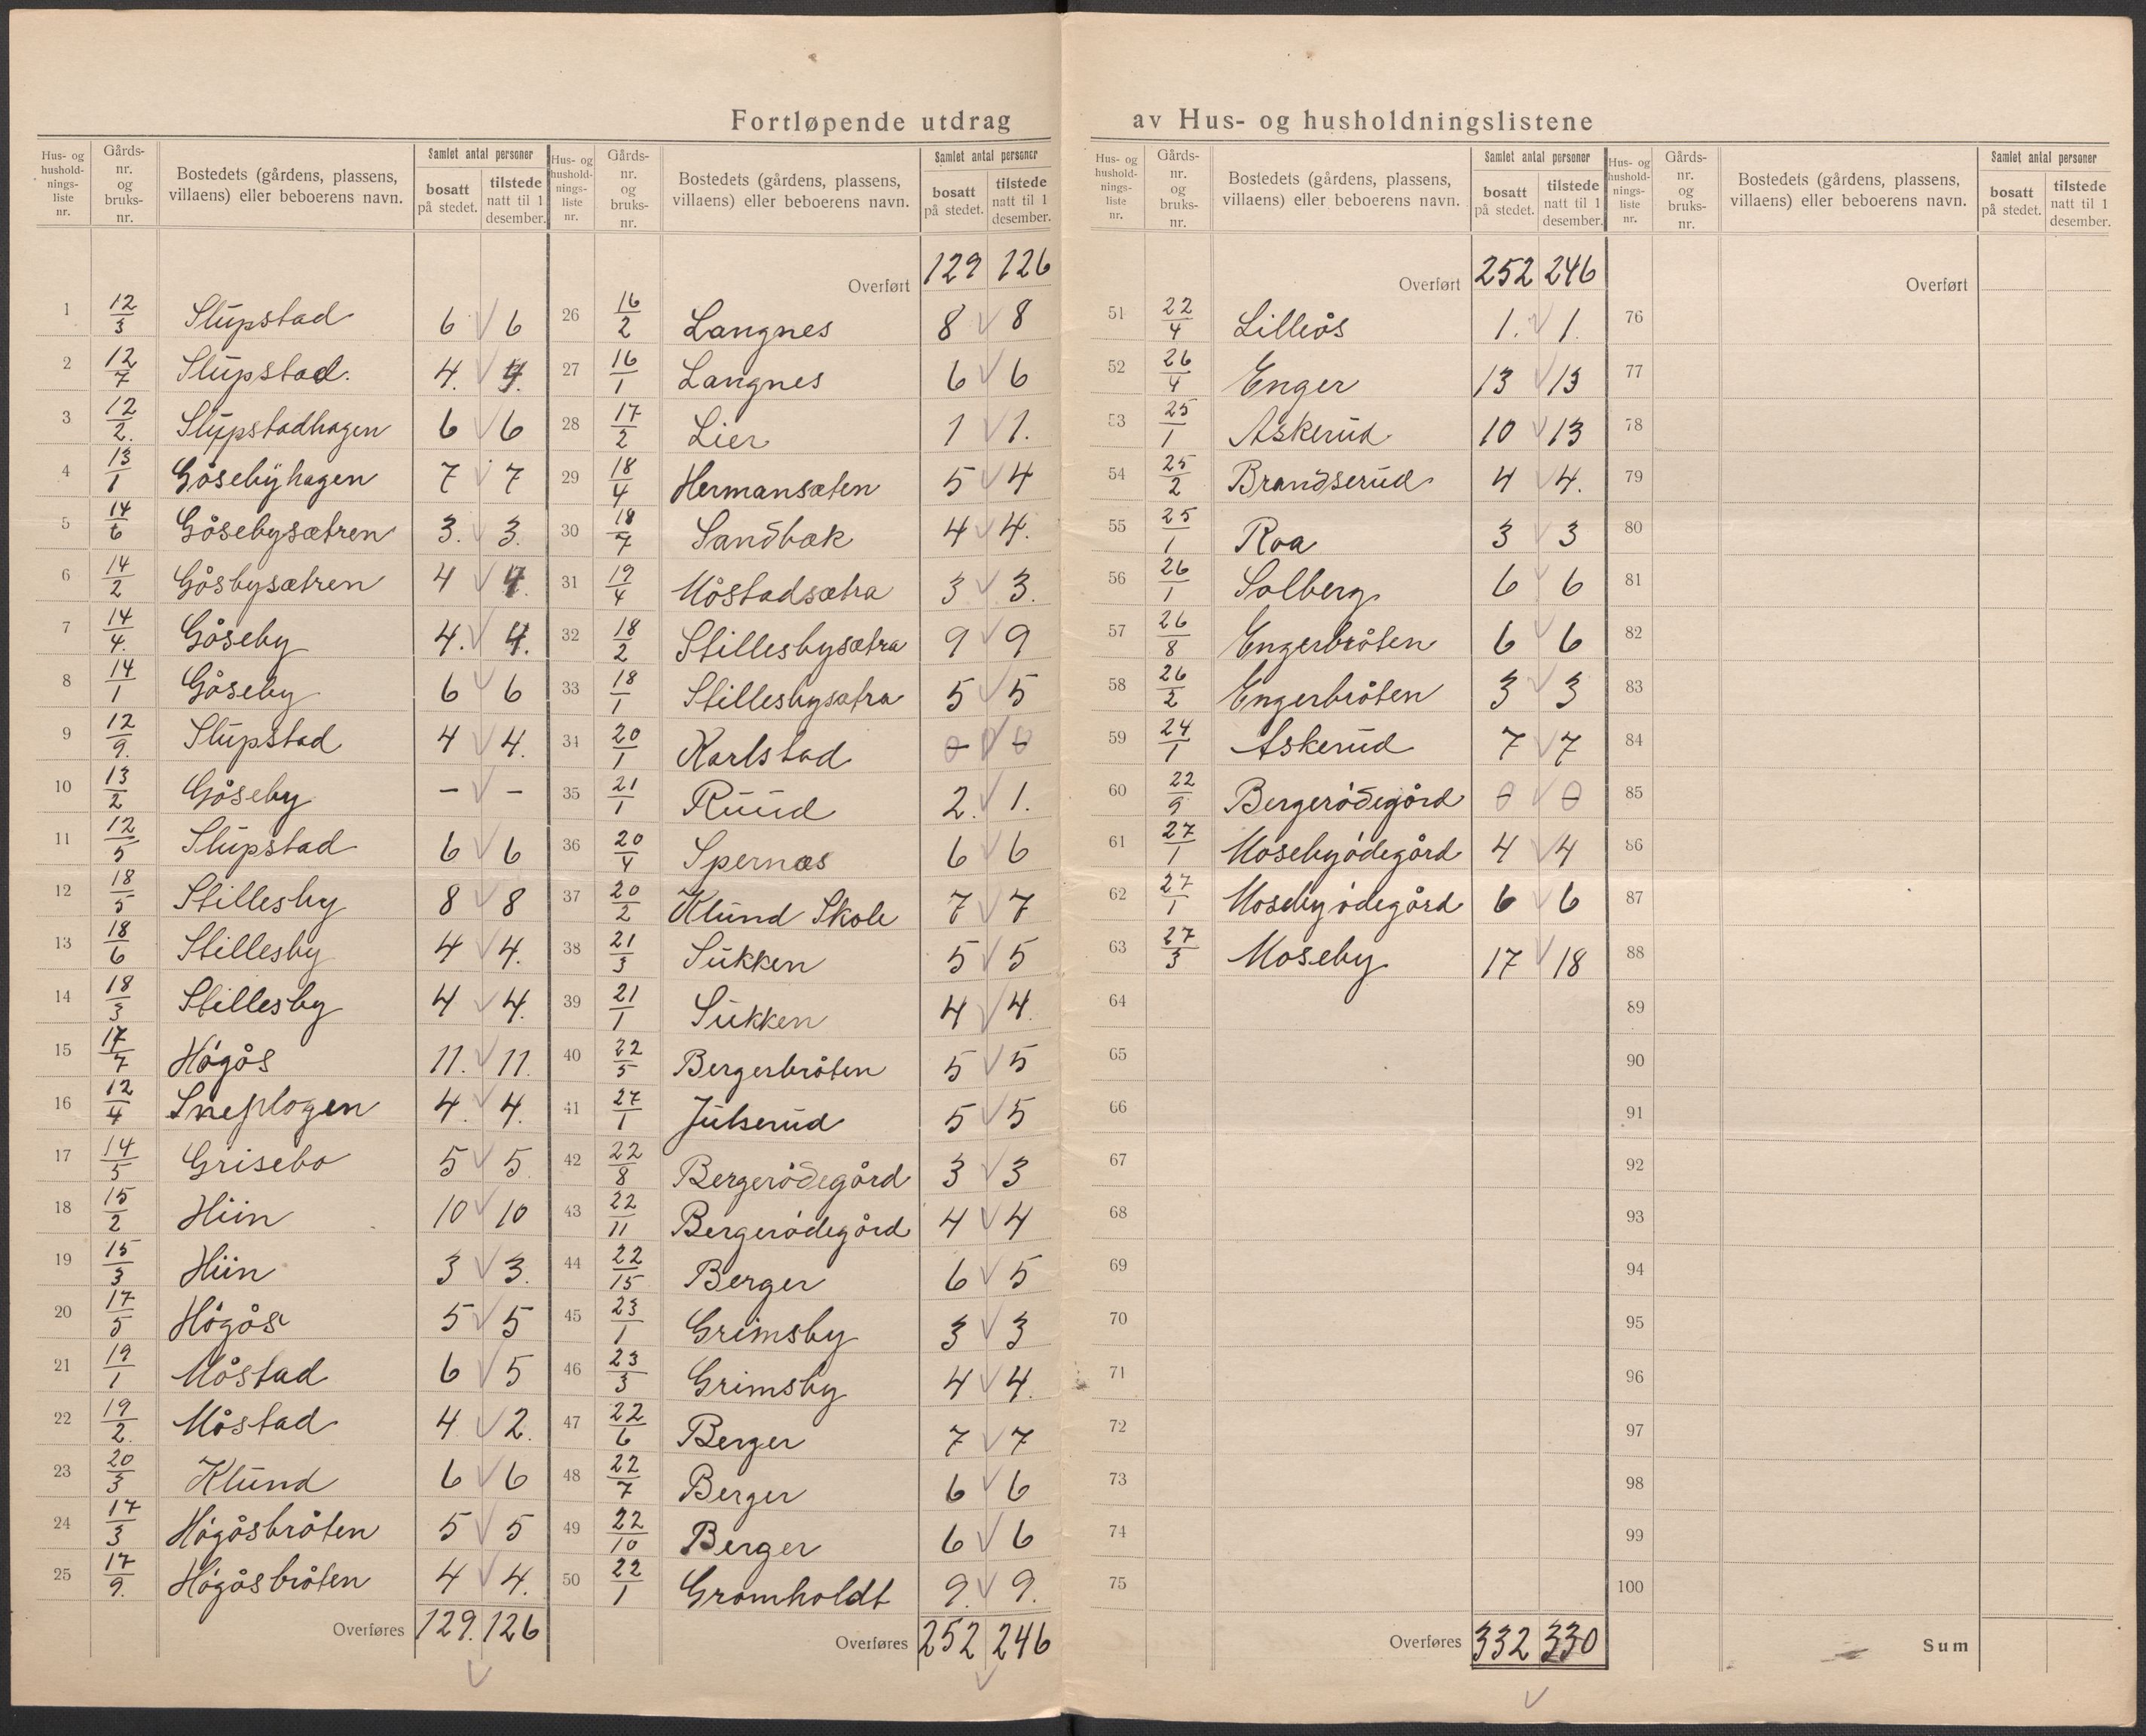 Fortløpende utdrag av Hus- og husholdningslistene
Hus- og hushold-nings-liste nr. | Gårds-nr. og bruks-nr. | Bostedets (gårdens, plassens, villaens) eller beboerens navn. | Samlet antal personer | bosatt på stedet. | tilstede natt til 1 desember.
1 12/3 Slupstad 6 6
2 12/7 Slupstad. 4. 4.
3 12/2. Slupstadhagen 6 6
4 13/1 Gåsebyhagen 7 7
5 14/6 Gåsebysætren 3. 3.
6 14/2 Gåsbysætren 4 4.
7 14/4. Gåseby 4. 4.
8 14/1 Gåseby 6 6
9 12/9. Slupstad 4 4.
10 13/2 Gåseby – –
11 12/5 Slupstad 6 6
12 18/5 Stillesby 8 8
13 18/6 Stillesby 4 4.
14 18/3 Stillesby 4 4.
15 17/7 Høgås 11. 11.
16 12/4 Sneplogen 4. 4.
17 14/5 Grisebo 5 5.
18 15/2 Hün 10 10
19 15/3 Hün 3 3.
20 17/5 Høgås 5 5
21 19/1 Måstad 6 5
22 19/2. Måstad 4 2.
23 20/3 Klund 6 6
24 17/3 Høgåsbråten 5 5
25 17/9. Høgåsbråten 4 4.
Overføres 129. 126
Hus- og hushold-nings-liste nr. | Gårds-nr. og bruks-nr. | Bostedets (gårdens, plassens, villaens) eller beboerens navn. | Samlet antal personer | bosatt på stedet. | tilstede natt til 1 desember.
Overført 129 126
26 16/2 Langnes 8 8
27 16/1 Langnes 6 6
28 17/2 Lier 1 1.
29 18/4 Hermansæten 5 4
30 18/7 Sandbæk 4 4.
31 19/4 Måstadsætra 3 3.
32 18/2 Stillesbysætra 9 9
33 18/1 Stillesbysætra 5 5
34 20/1 Karlstad 0 0
35 21/1 Ruud 2. 1.
36 20/4 Spernæs 6 6
37 20/2 Klund Skole 7 7
38 21/3 Sukken 5 5
39 21/1 Sukken 4 4.
40 22/5 Bergerbråten 5 5
41 27/1 Julserud 5 5
42 22/8 Bergerødegård 3 3
43 22/11 Bergerødegård 4 4
44 22/15 Berger 6 5
45 23/1 Grimsby 3 3
46 23/3 Grimsby 4 4.
47 22/6 Berger 7 7
48 22/7 Berger 6 6
49 22/10 Berger 6 6
50 22/1 Gromholdt 9. 9.
Overføres 252 246
Hus- og hushold-nings-liste nr. | Gårds-nr. og bruks-nr. | Bostedets (gårdens, plassens, villaens) eller beboerens navn. | Samlet antal personer | bosatt på stedet. | tilstede natt til 1 desember.
Overført 252 246
51 22/4 Lilleås 1. 1.
52 26/4 Enger 13 13
53 25/1 Askerud 10 13
54 25/2 Brandserud 4 4.
55 25/1 Roa 3 3
56 26/1 Solberg 6 6
57 26/8 Engerbråten 6 6
58 26/2 Engerbråten 3 3
59 24/1 Askerud 7 7
60 22/9 Bergerødegård 0 0
61 27/1 Mosebyødegård 4 4
62 27/1 Mosebyødegård 6 6
63 27/3 Moseby 17 18
64
65
66
67
68
69
70
71
72
73
74
75
Overføres 332 330
Hus- og hushold-nings-liste nr. | Gårds-nr. og bruks-nr. | Bostedets (gårdens, plassens, villaens) eller beboerens navn. | Samlet antal personer | bosatt på stedet. | tilstede natt til 1 desember.
Overført
76
77
78
79
80
81
82
83
84
85
86
87
88
89
90
91
92
93
94
95
96
97
98
99
100
Sum